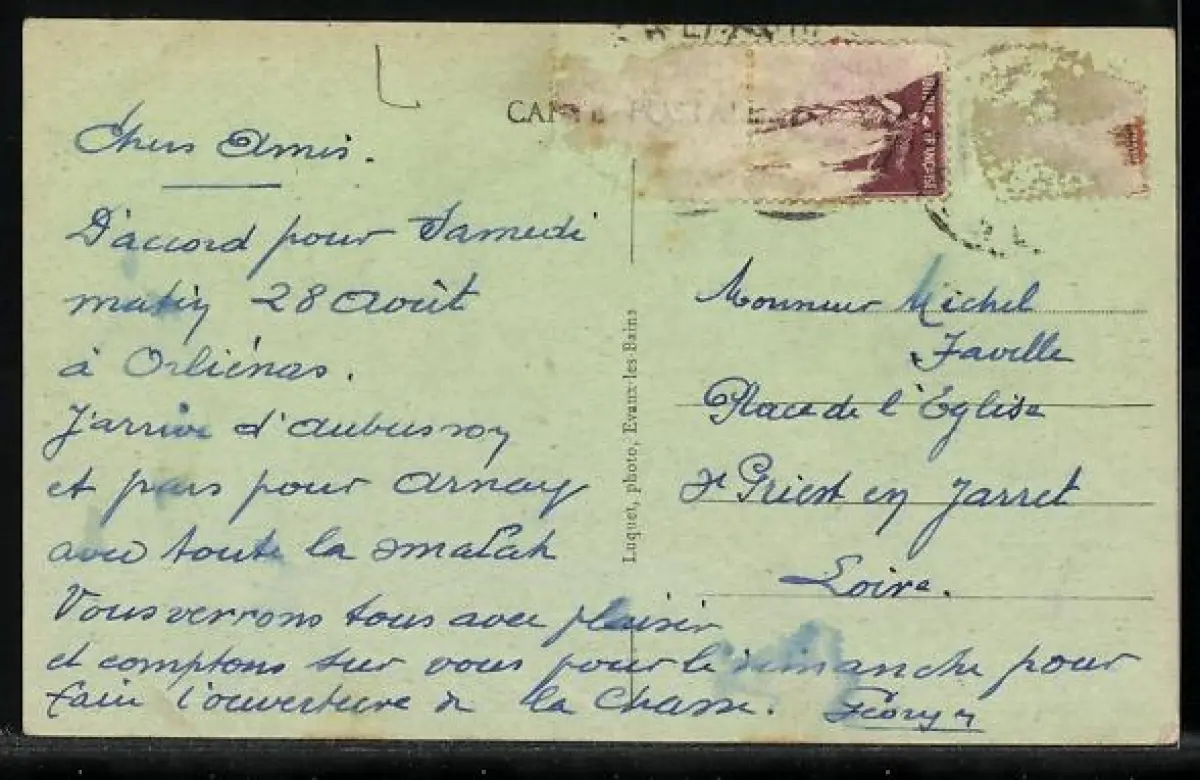 CARTE POSTALE
Chers Amis.
D'accord pour Samedi
matin 28 Août
à Orliénas.
J'arrive d'Aubusson
et pars pour Arnay
avec toute la smalah
Vous verrons tous avec plaisir
et comptons sur vous pour le dimanche pour
faire l'ouverture de la Chasse.
Luquet, photo, Evaux-les-Bains
Monsieur Michel
Faville
Place de l'Eglise
St Priest en Jarret
Loire.